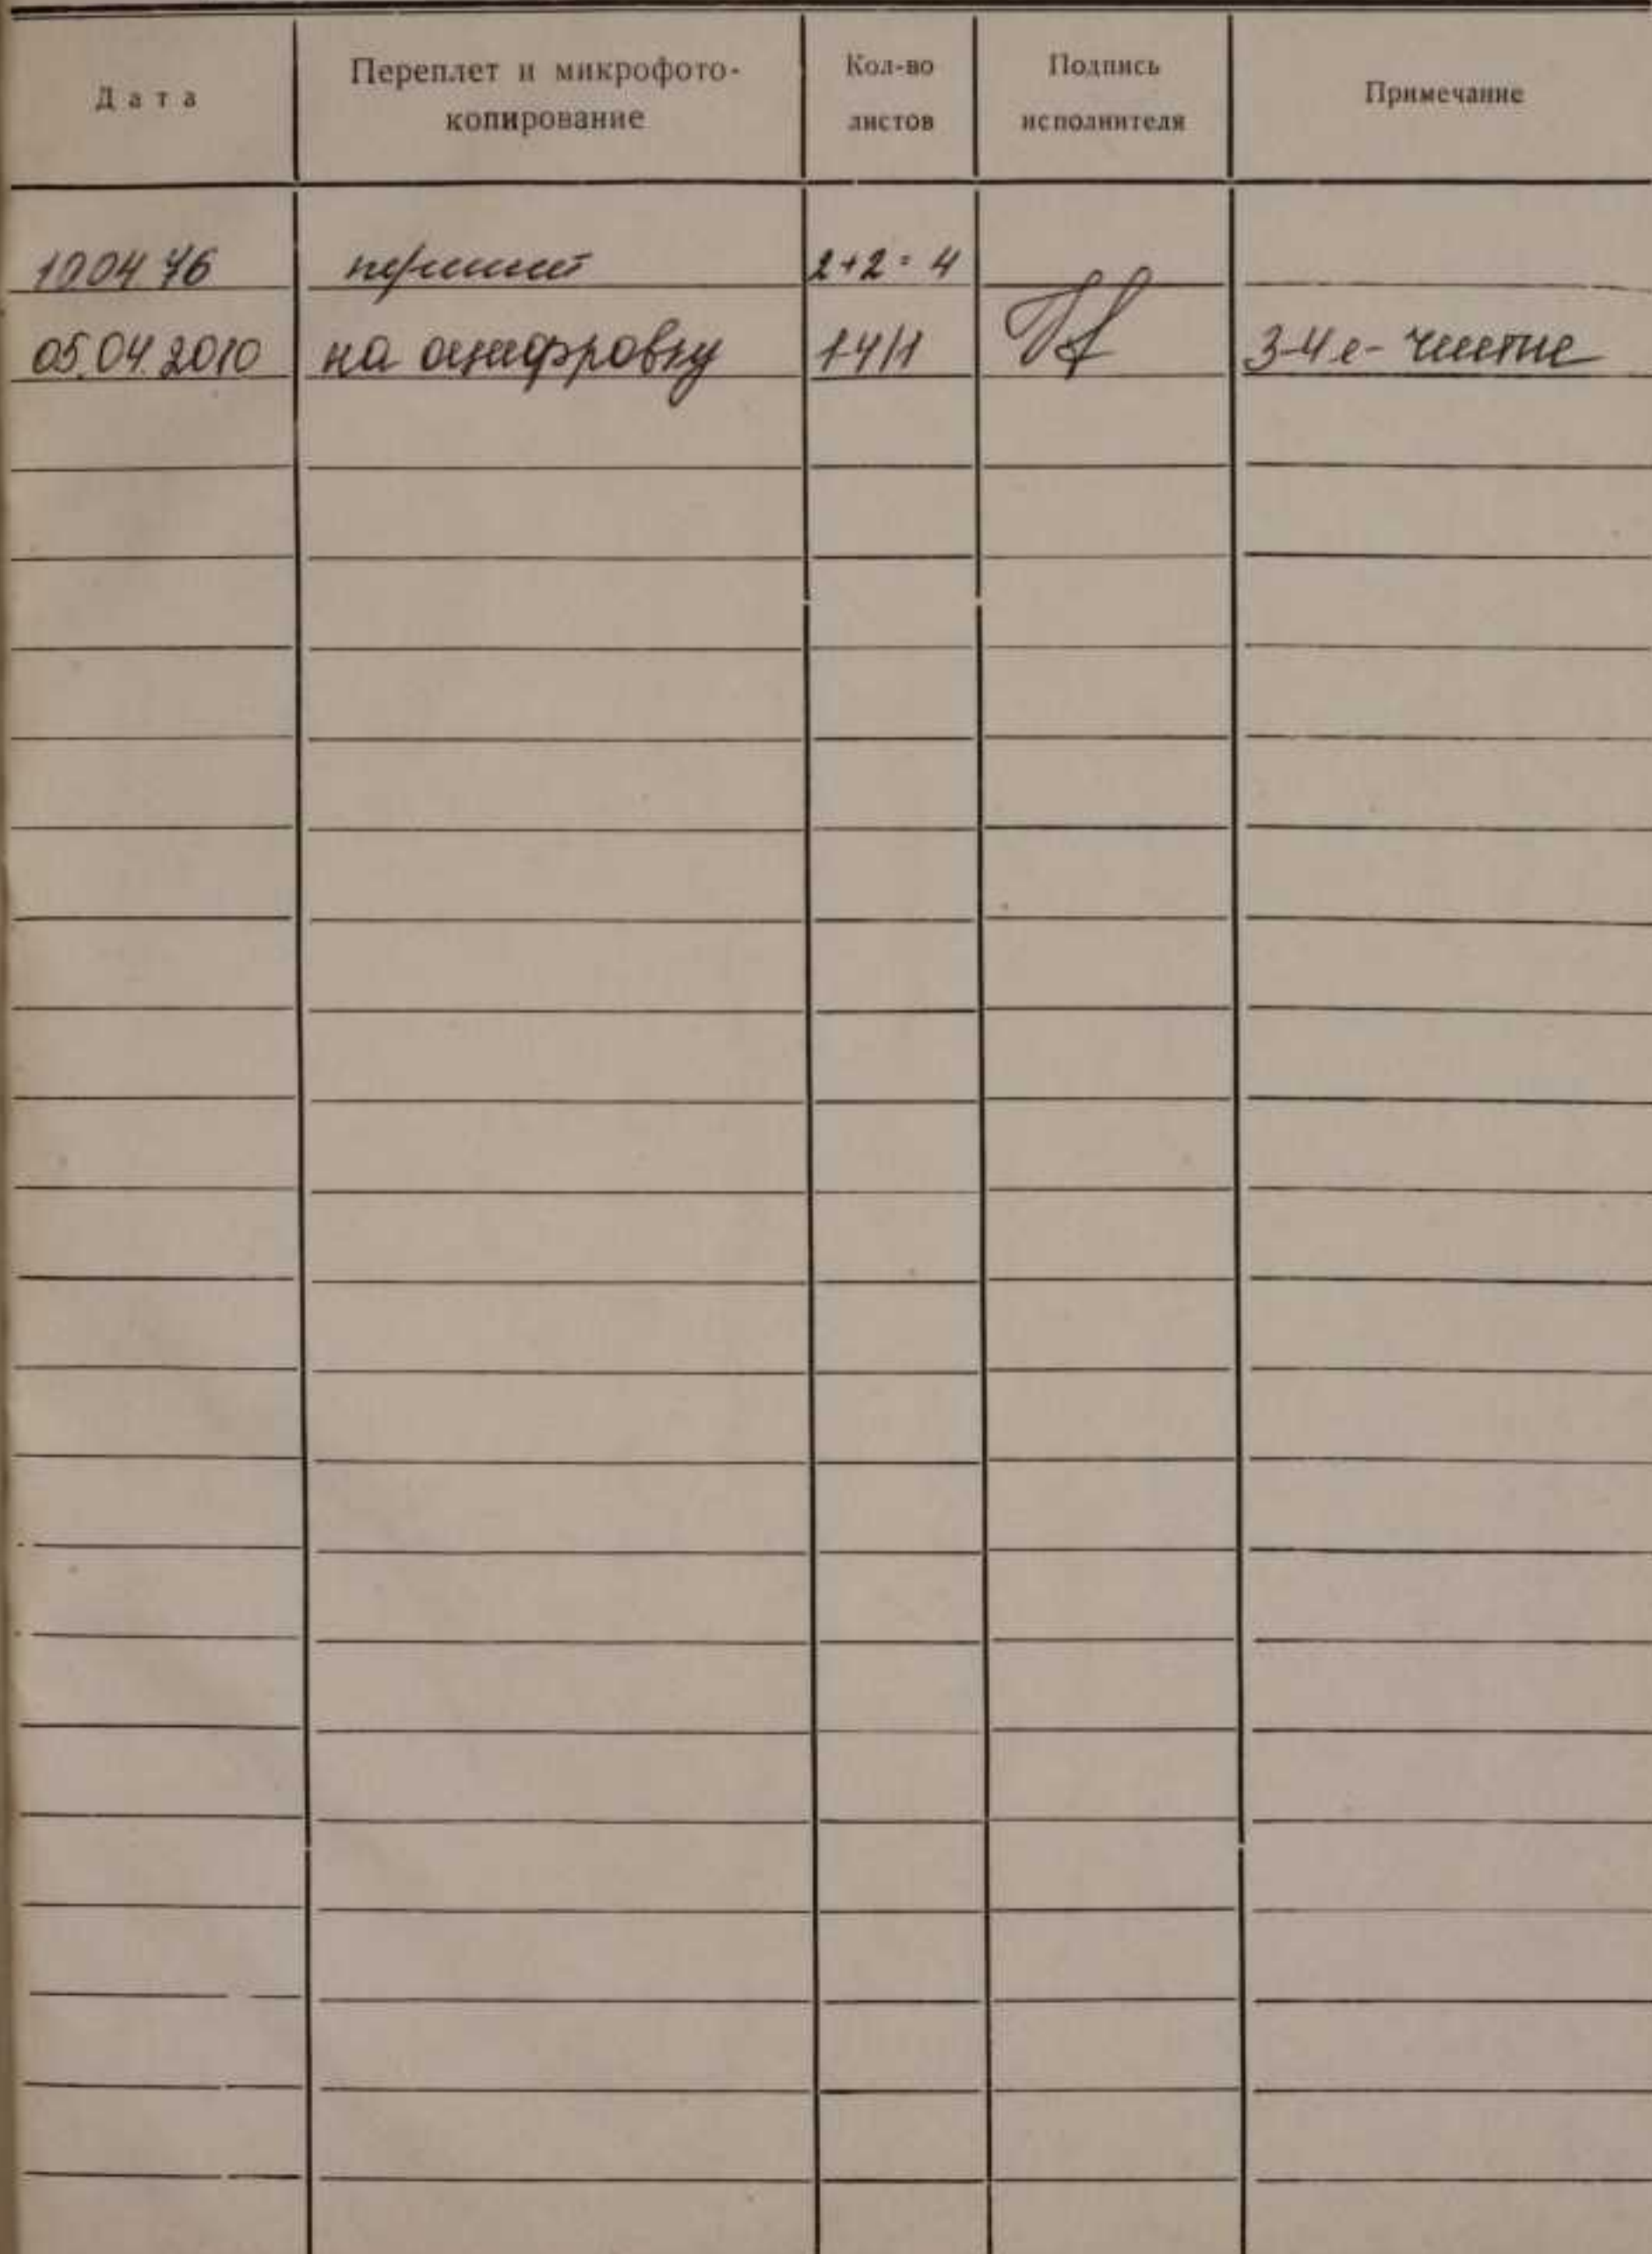 Дата
Переплет и микрофото-
копирование
Кол-во
листов
Подпись
исполнителя
Примечание
10 04 76 2+2=4
05.04.2010 на оцифровку 1-4/1 3-4 е- чистые